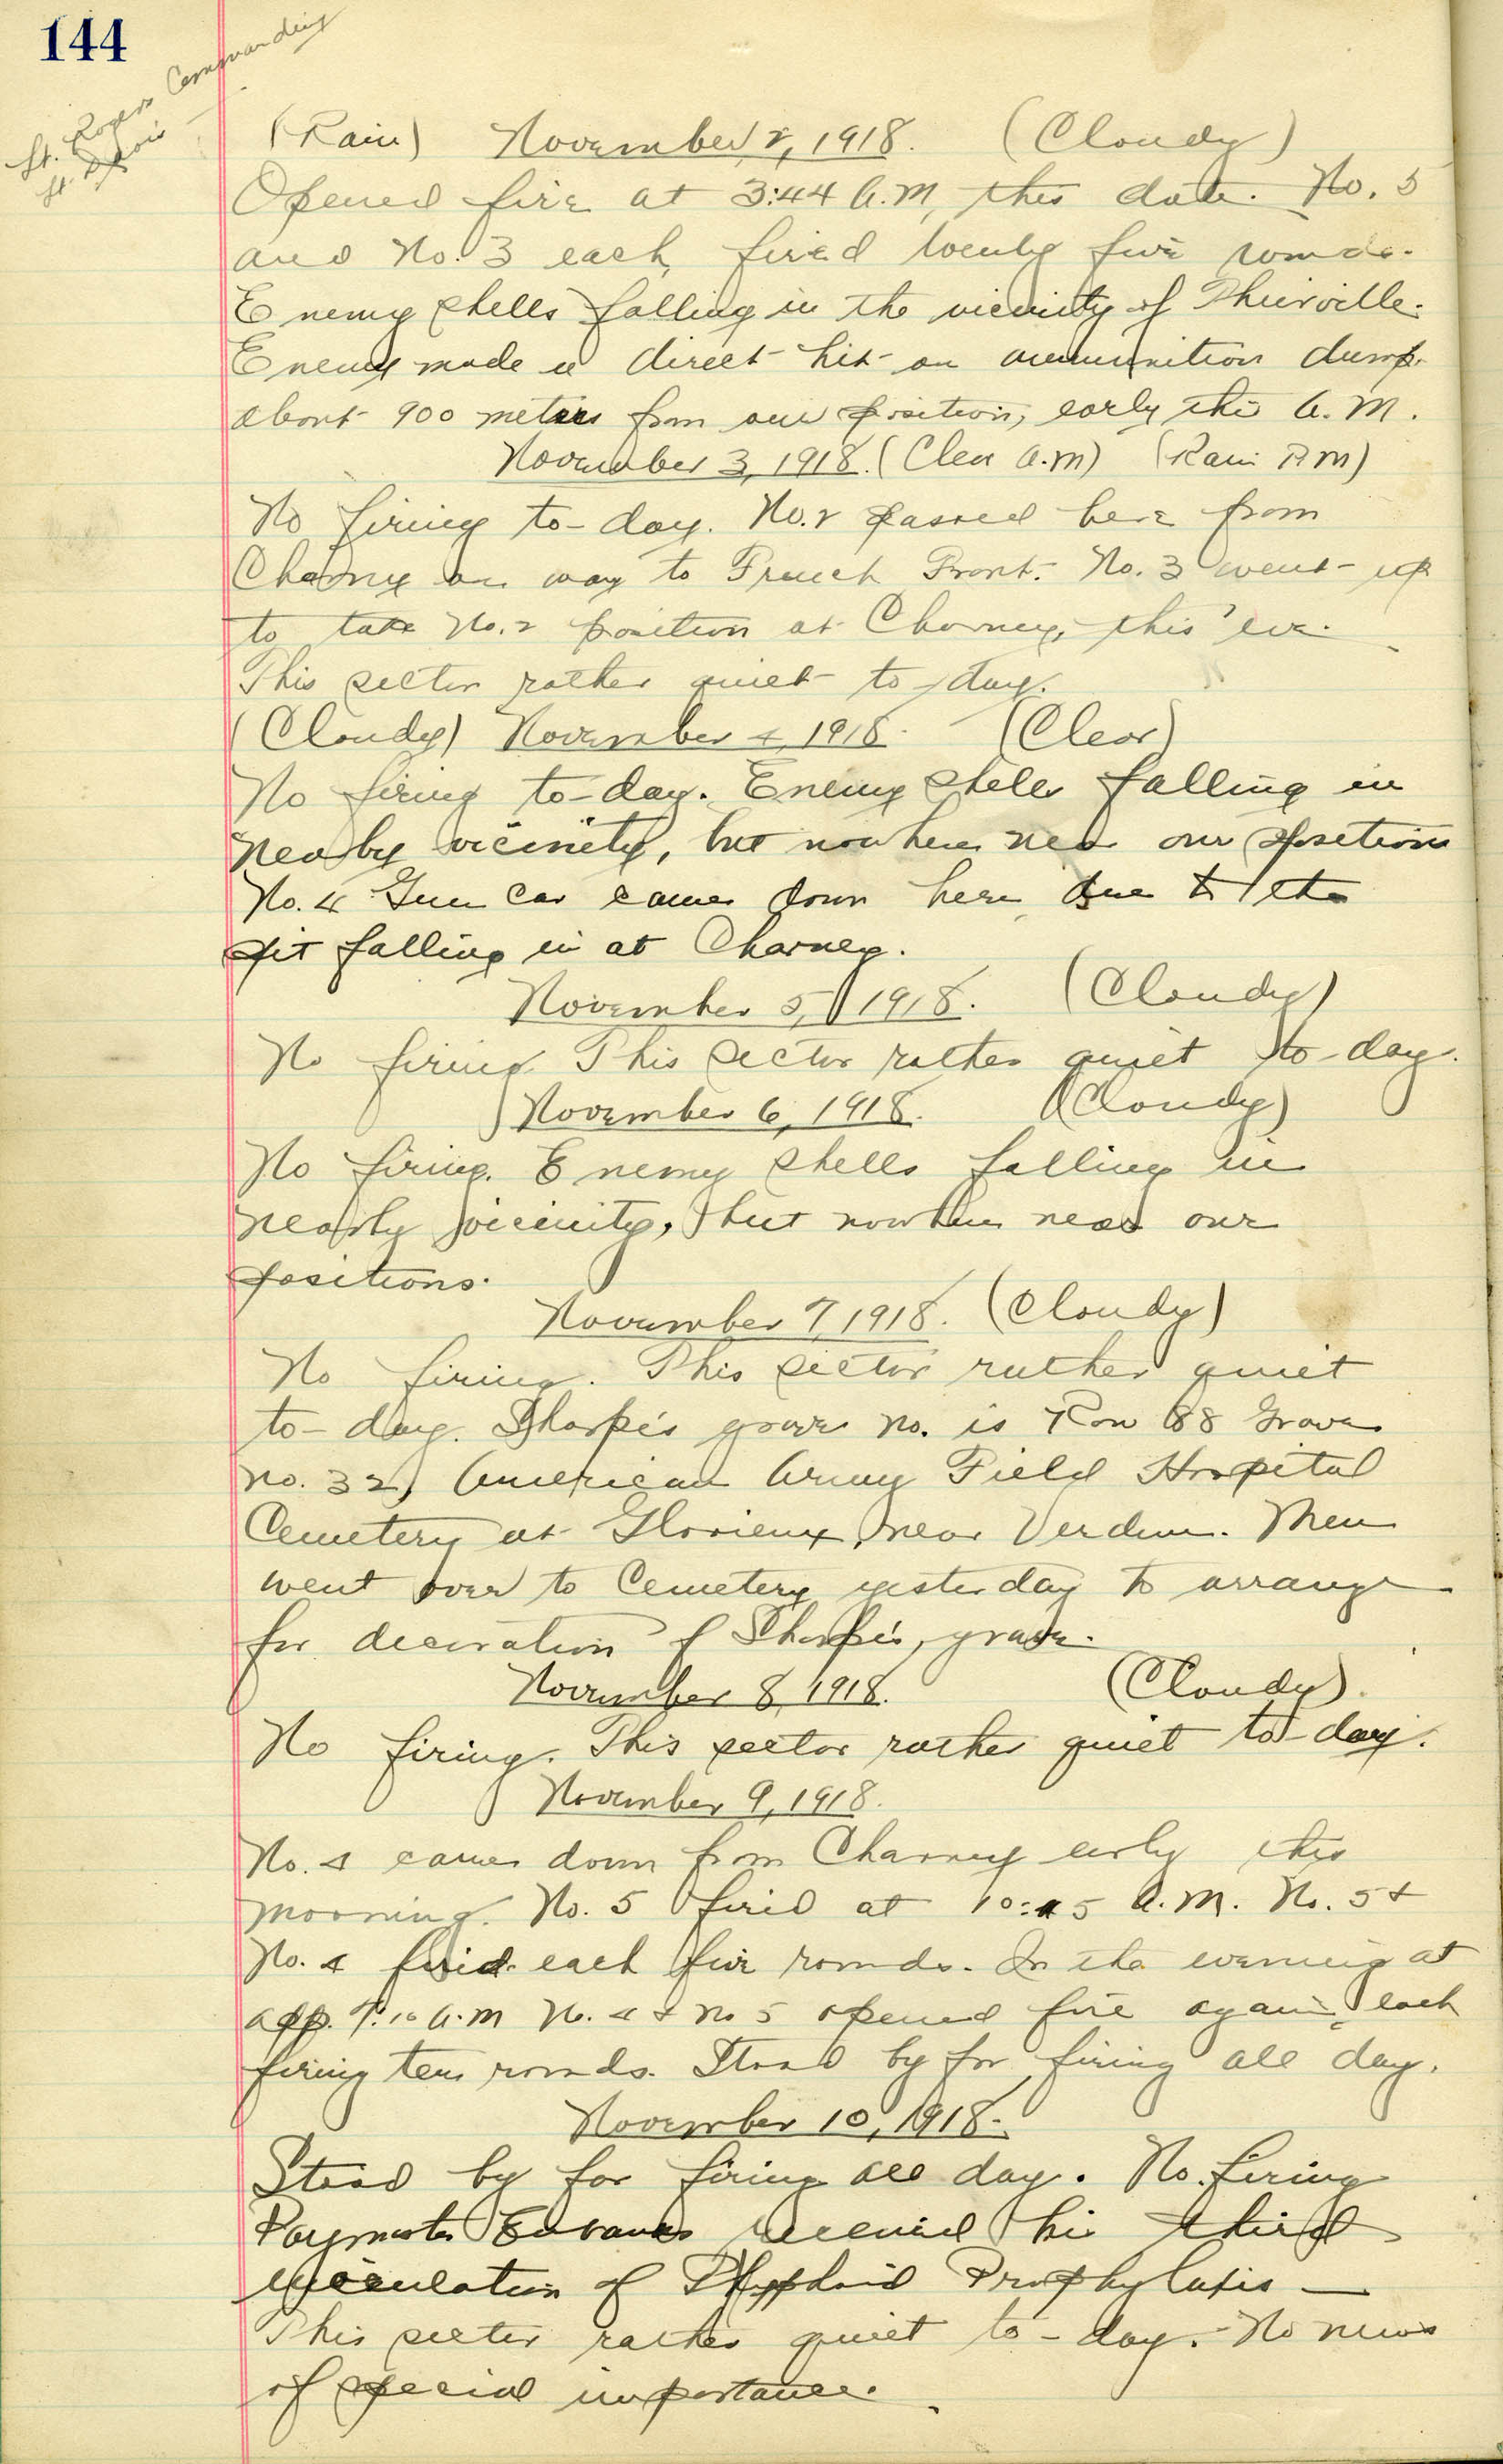 144
Lt. Rogers Commanding
Lt.
(Rain) November 2, 1918. (Cloudy)
Opened fire at 3:44 A.M, this date. No. 5
and No. 3 each fired twenty five rounds.
Enemy shells falling in the vicinity of Thierville.
Enemy made a direct hit on ammunition dump
about 900 meters from our position, early this A.M.
November 3, 1918. (Clear A.M) (Rain P.M)
No firing to-day. No. 2 passed here from
Charney on way to French Front. No. 3 went up
to take No. 2 position at Charney, this eve.
This sector rather quiet to-day.
(Cloudy) November 4, 1918. (Clear)
No firing to-day. Enemy shells falling in
nearby vicinity, but nowhere near our positions
No. 4 Gun Car came down here due to the
pit falling in at Charney.
November 5, 1918. (Cloudy)
No firing. This sector rather quiet to-day.
November 6, 1918. (Cloudy)
No firing. Enemy shells falling in
nearby vicinity, but nowhere near our
positions.
November 7, 1918. (Cloudy)
No firing. This sector rather quiet
to-day. Sharpe's grave no. is Row 88 Grave
no. 32, American Army Field Hospital
Cemetery at Glorieux, near Verdun. Men
went over to Cemetery yesterday to arrange
for decoration of Sharpe's, grave.
November 8, 1918. (Cloudy).
No firing. This sector rather quiet to-day.
November 9, 1918.
No. 4 came down from Charney early this
morning. No. 5 fired at 10:45 A.M. No. 5 &
No. 4 fired each five rounds. In the evening at
app. 7:10 A.M No. 4 & No 5 opened fire again each
firing ten rounds. Stood by for firing all day.
November 10, 1918.
Stood by for firing all day. No firing
Paymaster Eubanks received his third
inoculation of Thyphoid Prophylaxis —
This sector rather quiet to-day. No news
of special importance.